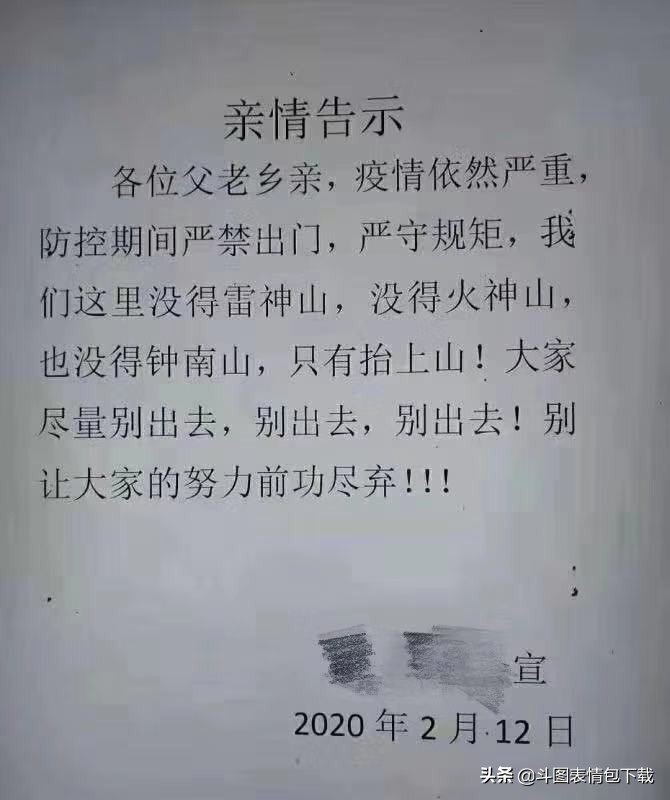 亲情告示
各位父老乡亲，疫情依然严重，
防控期间严禁出门，严守规矩，我
们这里没得雷神山，没得火神山，
也没得钟南山，只有抬上山！大家
尽量别出去，别出去，别出去！别
让大家的努力前功尽弃！！！
宣
2020年2月12日
头条 @斗图表情包下载